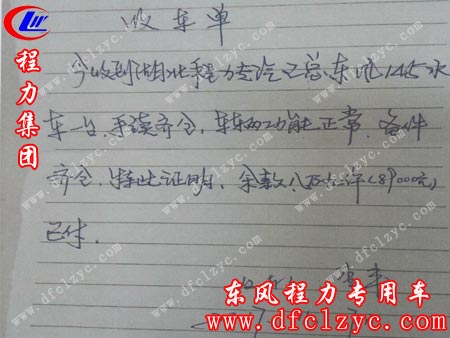 收车单
今收到湖北程力专汽王总东风145水
车一台,手续齐全,车辆功能正常,备件
齐全,特此证明,余款八万九仟(89000元)
已付.
程力集团
东风程力专用车
www.dfclzyc.com